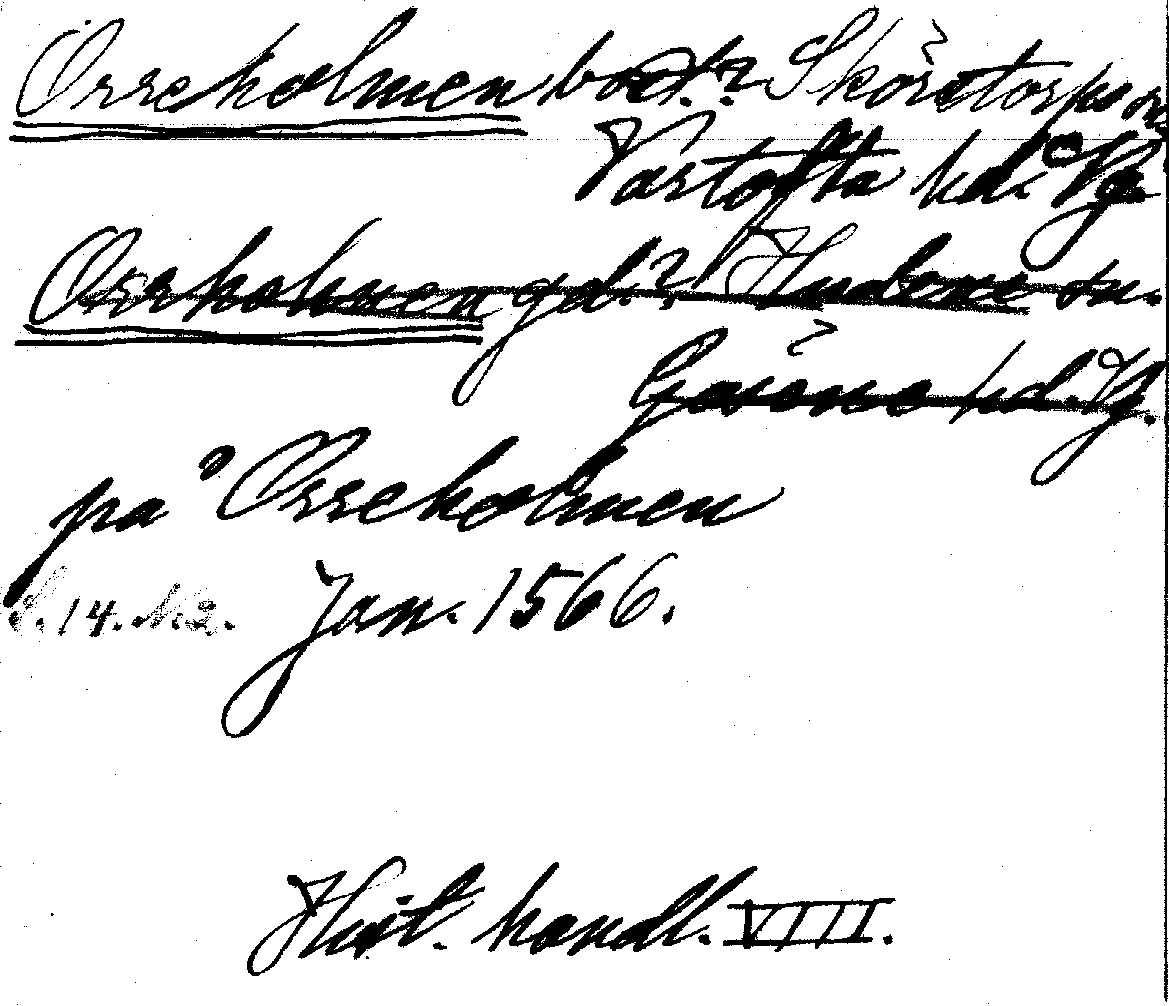 Orreholmen bost.? Skörstorps sn
Vartofta hd. Vg
Orrholmen gd.? Hudene sn.
Gäsene hd. Vg.
på Orreholmen
S. 14. N:2. Jan. 1566.
Hist. handl. VIII.